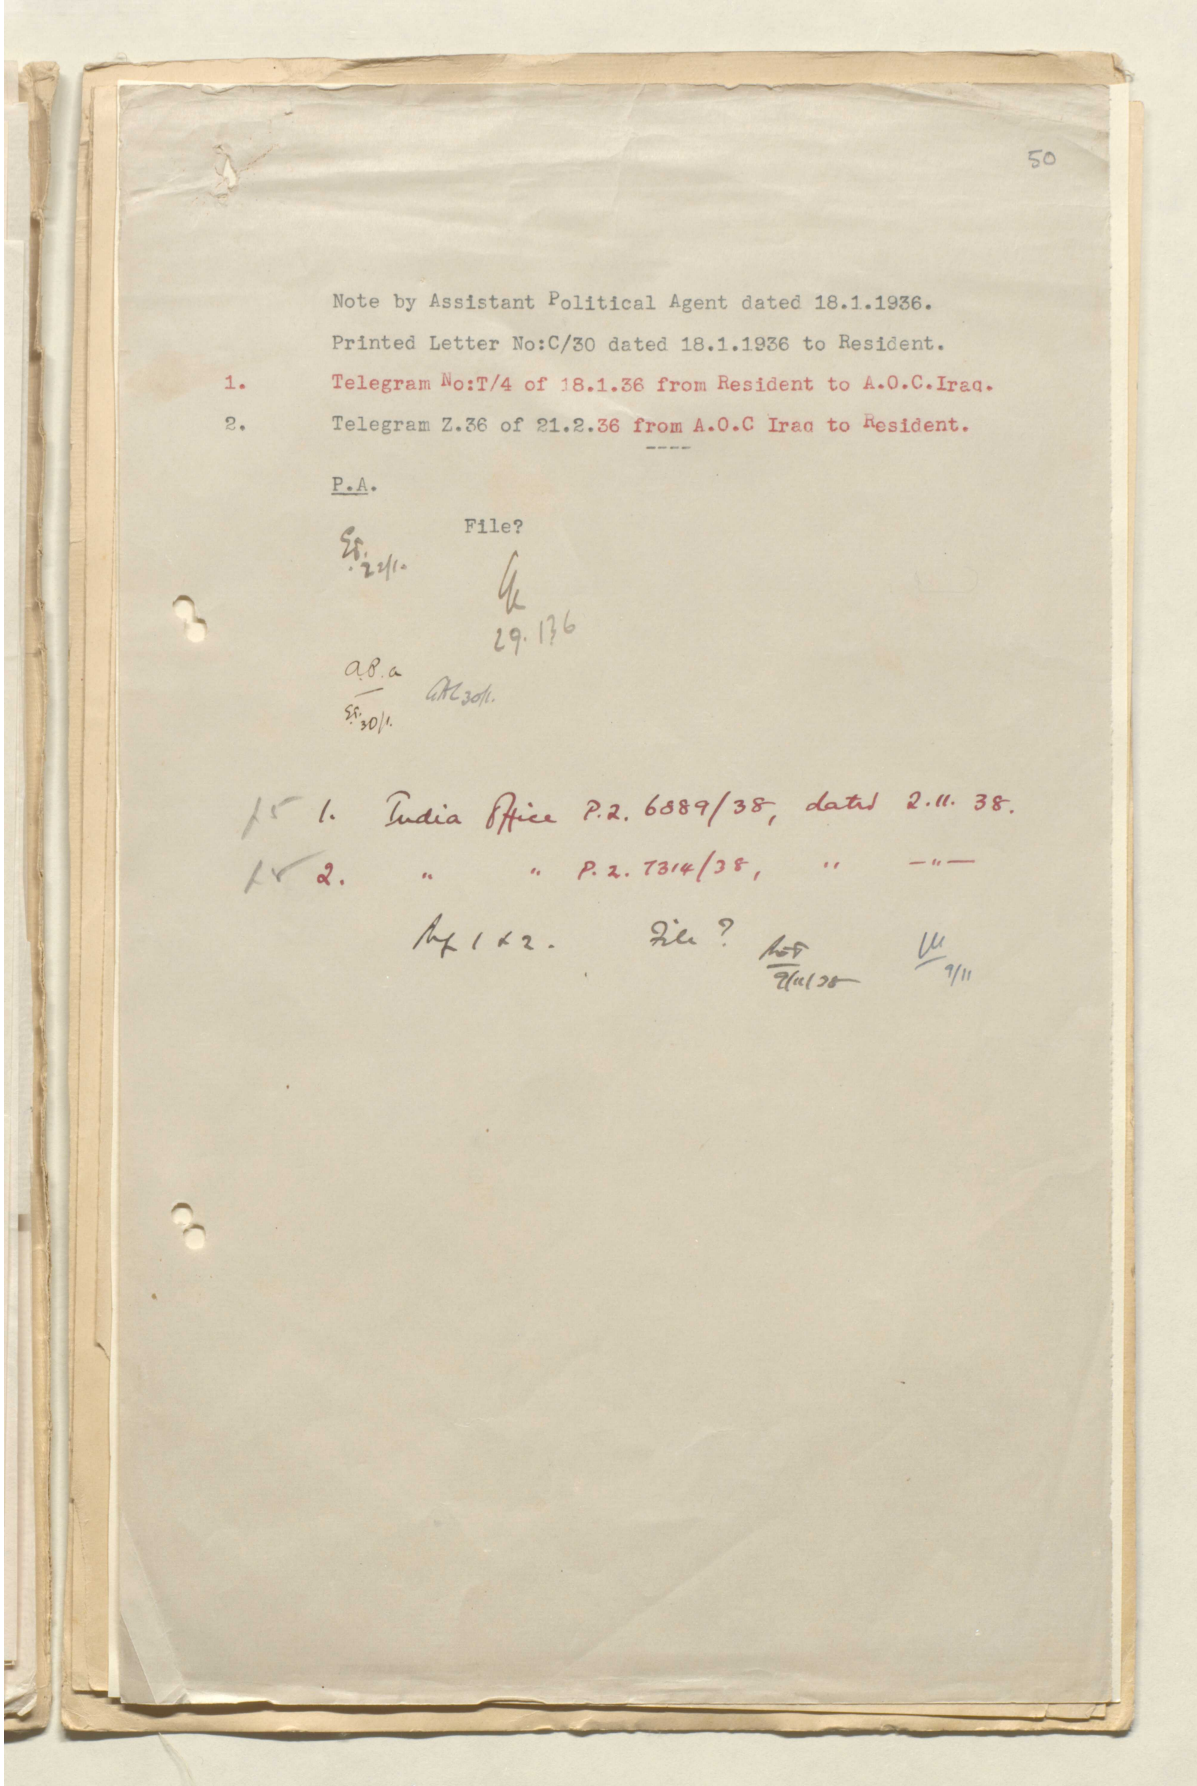 50
Note by Assistant Political Agent dated 18.1.1936.
Printed Letter No:C/30 dated 18.1.1936 to Resident.
1. Telegram No:T/4 of 18.1.36 from Resident to A.O.C.Iraq.
2. Telegram Z.36 of 21.2.36 from A.O.C Iraq to Resident.
----
P.A.
File?
22/1.
29.1.36
A.P.A
30/1.
30/1.
1. India Office P.Z. 6889/38, dated 2.11.38.
2. " " P.Z. 7314/38, " —"—
1 & 2. File?
9/11/38
9/11